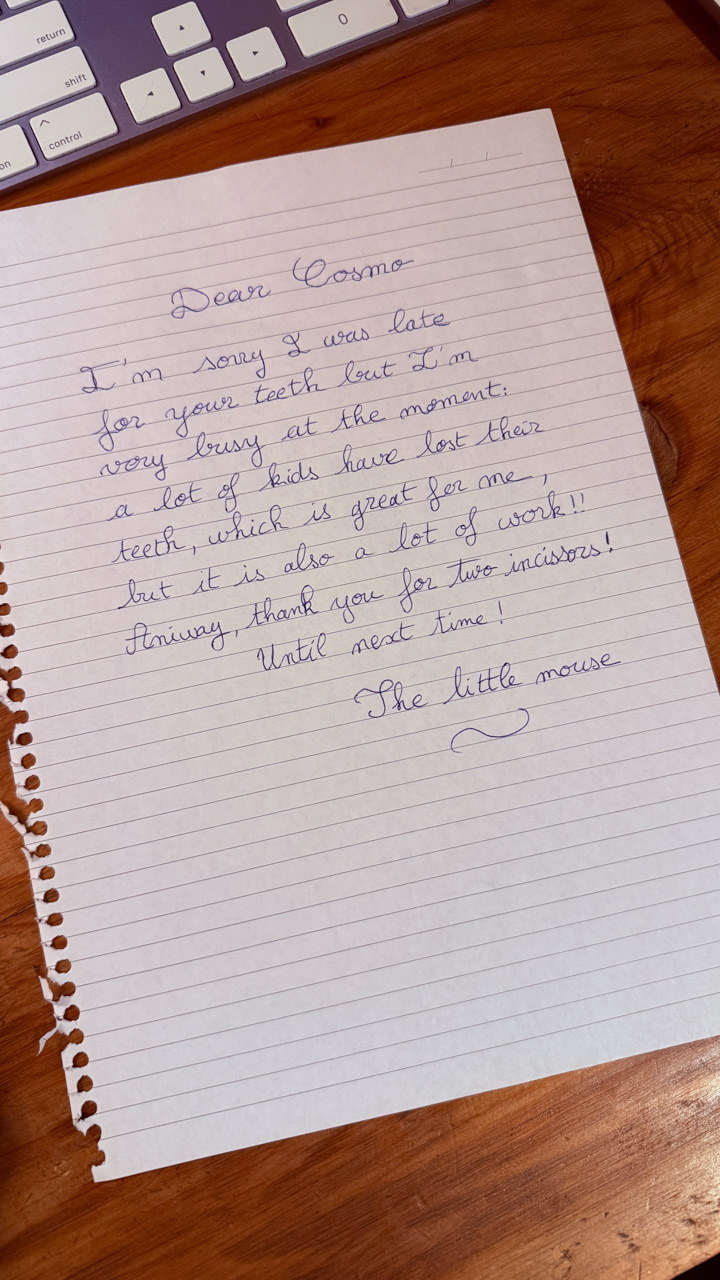 return
shift
control
on
0
Dear Cosmo
I'm sorry I was late
for your teeth but I'm
very busy at the moment:
a lot of kids have lost their
teeth, which is great for me,
but it is also a lot of work!!
Aniway, thank you for two incissors!
Until next time!
The little mouse